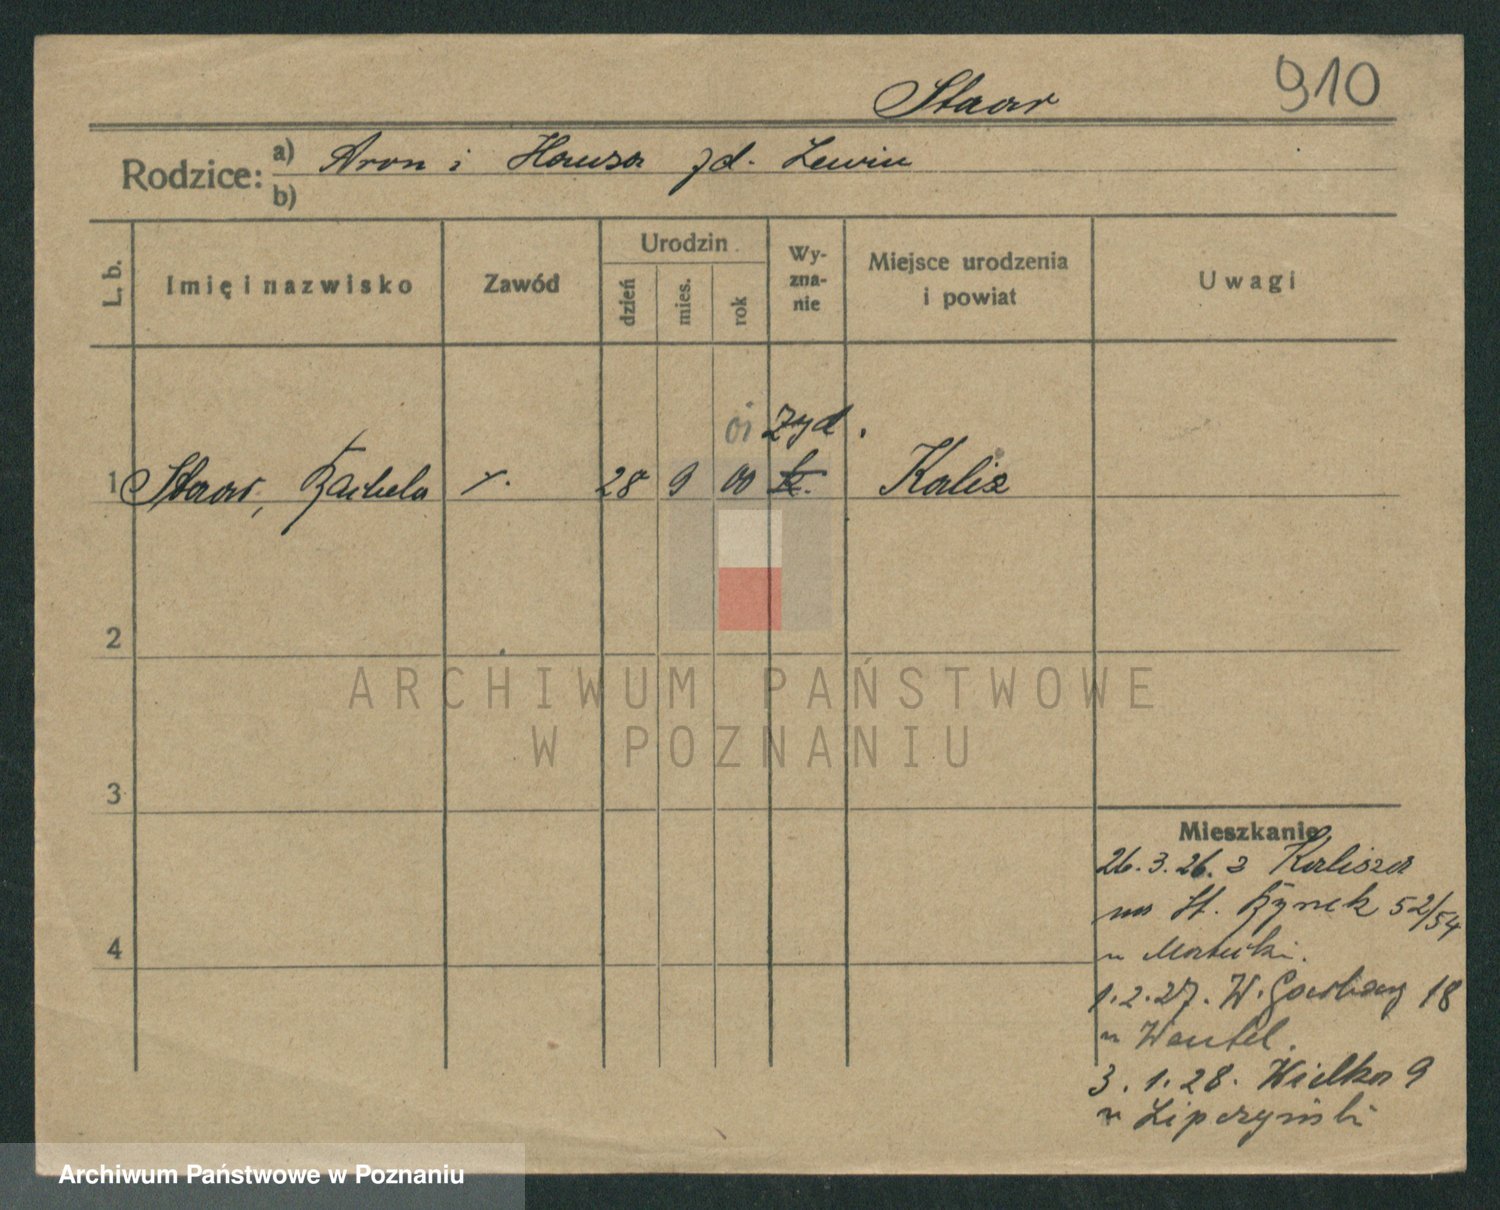 910
Staar
Rodzice: a) Aron i Hansa zd. Lewin
b)
L. b. Imię i nazwisko Zawód Urodzin dzień mies. rok Wy-zna-nie Miejsce urodzenia i powiat Uwagi
01 Żyd.
1 Staar, Rachela 28 9 00 k. Kalisz
2
3
4
Mieszkanie
26.3.26. z Kalisza
na St. Rynek 52/54
u
1.2.27. W. Garbary 18
u
3.1.28. Wielka 9
u Lipczyński
ARCHIWUM PAŃSTWOWE
W POZNANIU
Archiwum Państwowe w Poznaniu